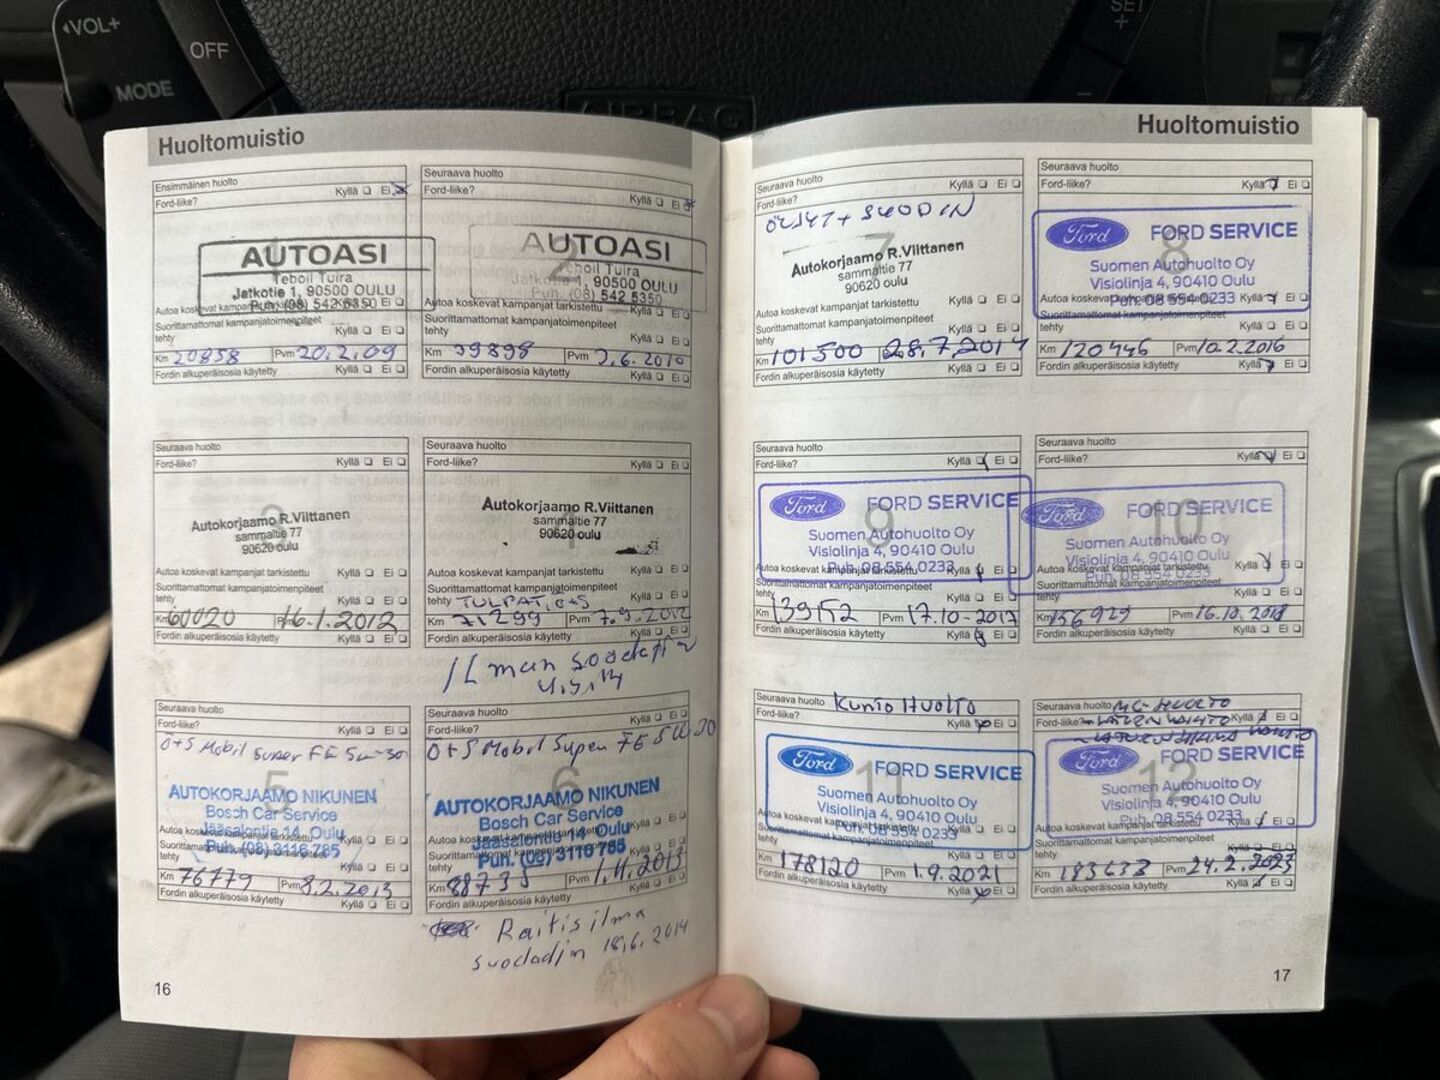 VOL+
OFF
MODE
SET
+
AIRBAG
Huoltomuistio
Ensimmäinen huolto
Ford-liike? Kyllä Ei
1
AUTOASI
Teboil Tuira
Jatkotie 1, 90500 OULU
Puh. (08) 542 5350
Autoa koskevat kampanjat tarkistettu Kyllä Ei
Suorittamattomat kampanjatoimenpiteet
tehty Kyllä Ei
Km 20858 Pvm 20.2.09
Fordin alkuperäisosia käytetty Kyllä Ei
Seuraava huolto
Ford-liike? Kyllä Ei
2
AUTOASI
Teboil Tuira
Jatkotie 1, 90500 OULU
Puh. (08) 542 5350
Autoa koskevat kampanjat tarkistettu Kyllä Ei
Suorittamattomat kampanjatoimenpiteet
tehty Kyllä Ei
Km 39898 Pvm 3.6.2010
Fordin alkuperäisosia käytetty Kyllä Ei
Seuraava huolto
Ford-liike? Kyllä Ei
3
Autokorjaamo R.Viittanen
sammaltie 77
90620 oulu
Autoa koskevat kampanjat tarkistettu Kyllä Ei
Suorittamattomat kampanjatoimenpiteet
tehty Kyllä Ei
Km 60020 Pvm 16.1.2012
Fordin alkuperäisosia käytetty Kyllä Ei
Seuraava huolto
Ford-liike? Kyllä Ei
Autokorjaamo R.Viittanen
sammaltie 77
90620 oulu
Autoa koskevat kampanjat tarkistettu Kyllä Ei
Suorittamattomat kampanjatoimenpiteet
tehty TULPAT, Ö+S Kyllä Ei
Km 71299 Pvm 7.9.2012
Fordin alkuperäisosia käytetty Kyllä Ei
Ilman suodatin
Seuraava huolto
Ford-liike? Kyllä Ei
Ö+S Mobil Super FE 5W-30
5
AUTOKORJAAMO NIKUNEN
Bosch Car Service
Jääsalontie 14, Oulu
Puh. (08) 3116 785
Autoa koskevat kampanjat tarkistettu Kyllä Ei
Suorittamattomat kampanjatoimenpiteet
tehty Kyllä Ei
Km 76779 Pvm 8.2.2013
Fordin alkuperäisosia käytetty Kyllä Ei
Seuraava huolto
Ford-liike? Kyllä Ei
Ö+S Mobil Super FE 5W-30
6
AUTOKORJAAMO NIKUNEN
Bosch Car Service
Jääsalontie 14, Oulu
Puh. (08) 3116 785
Autoa koskevat kampanjat tarkistettu Kyllä Ei
Suorittamattomat kampanjatoimenpiteet
tehty Kyllä Ei
Km 88735 Pvm 1.11.2013
Fordin alkuperäisosia käytetty Kyllä Ei
Raitisilma
suodadin 18.6.2014
16
Huoltomuistio
Seuraava huolto Kyllä Ei
Ford-liike?
ÖLJYT+ SUODIN
7
Autokorjaamo R.Viittanen
sammaltie 77
90620 oulu
Autoa koskevat kampanjat tarkistettu Kyllä Ei
Suorittamattomat kampanjatoimenpiteet
tehty Kyllä Ei
Km 101500 Pvm 28.7.2014
Fordin alkuperäisosia käytetty Kyllä Ei
Seuraava huolto
Ford-liike? Kyllä Ei
8
Ford FORD SERVICE
Suomen Autohuolto Oy
Visiolinja 4, 90410 Oulu
Puh. 08 554 0233
Autoa koskevat kampanjat tarkistettu Kyllä Ei
Suorittamattomat kampanjatoimenpiteet
tehty Kyllä Ei
Km 120446 Pvm 10.2.2016
Fordin alkuperäisosia käytetty Kyllä Ei
Seuraava huolto
Ford-liike? Kyllä Ei
9
Ford FORD SERVICE
Suomen Autohuolto Oy
Visiolinja 4, 90410 Oulu
Puh. 08 554 0233
Autoa koskevat kampanjat tarkistettu Kyllä Ei
Suorittamattomat kampanjatoimenpiteet
tehty Kyllä Ei
Km 139152 Pvm 17.10-2017
Fordin alkuperäisosia käytetty Kyllä Ei
Seuraava huolto
Ford-liike? Kyllä Ei
10
Ford FORD SERVICE
Suomen Autohuolto Oy
Visiolinja 4, 90410 Oulu
Puh. 08 554 0233
Autoa koskevat kampanjat tarkistettu Kyllä Ei
Suorittamattomat kampanjatoimenpiteet
tehty Kyllä Ei
Km 156929 Pvm 16.10.2018
Fordin alkuperäisosia käytetty Kyllä Ei
Seuraava huolto Kunto Huolto
Ford-liike? Kyllä Ei
11
Ford FORD SERVICE
Suomen Autohuolto Oy
Visiolinja 4, 90410 Oulu
Puh. 08 554 0233
Autoa koskevat kampanjat tarkistettu Kyllä Ei
Suorittamattomat kampanjatoimenpiteet
tehty Kyllä Ei
Km 178120 Pvm 1.9.2021
Fordin alkuperäisosia käytetty Kyllä Ei
Seuraava huolto HUOLTO
Ford-liike? VAIHTO Kyllä Ei
12
Ford FORD SERVICE
Suomen Autohuolto Oy
Visiolinja 4, 90410 Oulu
Puh. 08 554 0233
Autoa koskevat kampanjat tarkistettu Kyllä Ei
Suorittamattomat kampanjatoimenpiteet
tehty Kyllä Ei
Km 183638 Pvm 24.2.2023
Fordin alkuperäisosia käytetty Kyllä Ei
17